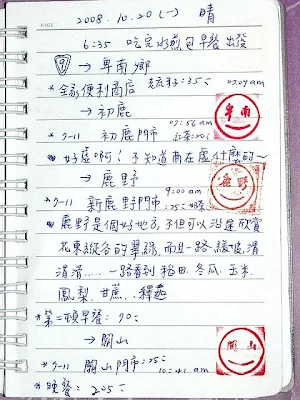 2008.10.20(一) 晴
6:35 吃完水煎包早餐 出發
⑨ → 卑南鄉
*全家便利商店 35元 07:09 am
卑南
→ 初鹿
07:56 am
*7-11 初鹿門市
好虛啊！不知道南在虛什麼的~
→ 鹿野
鹿野
9:00 am
*7-11 新鹿野門市 25元
鹿野是個好地方,不但可以沿途欣賞
花東縱谷的翠綠,而且一路緩坡,滑
滑滑..... 一路看到稻田.冬瓜.玉米.
鳳梨.甘蔗...釋迦
*第二頓早餐: 70元
→ 關山
關山
*7-11 關山門市:25元
10:41 am
*晚餐: 205元